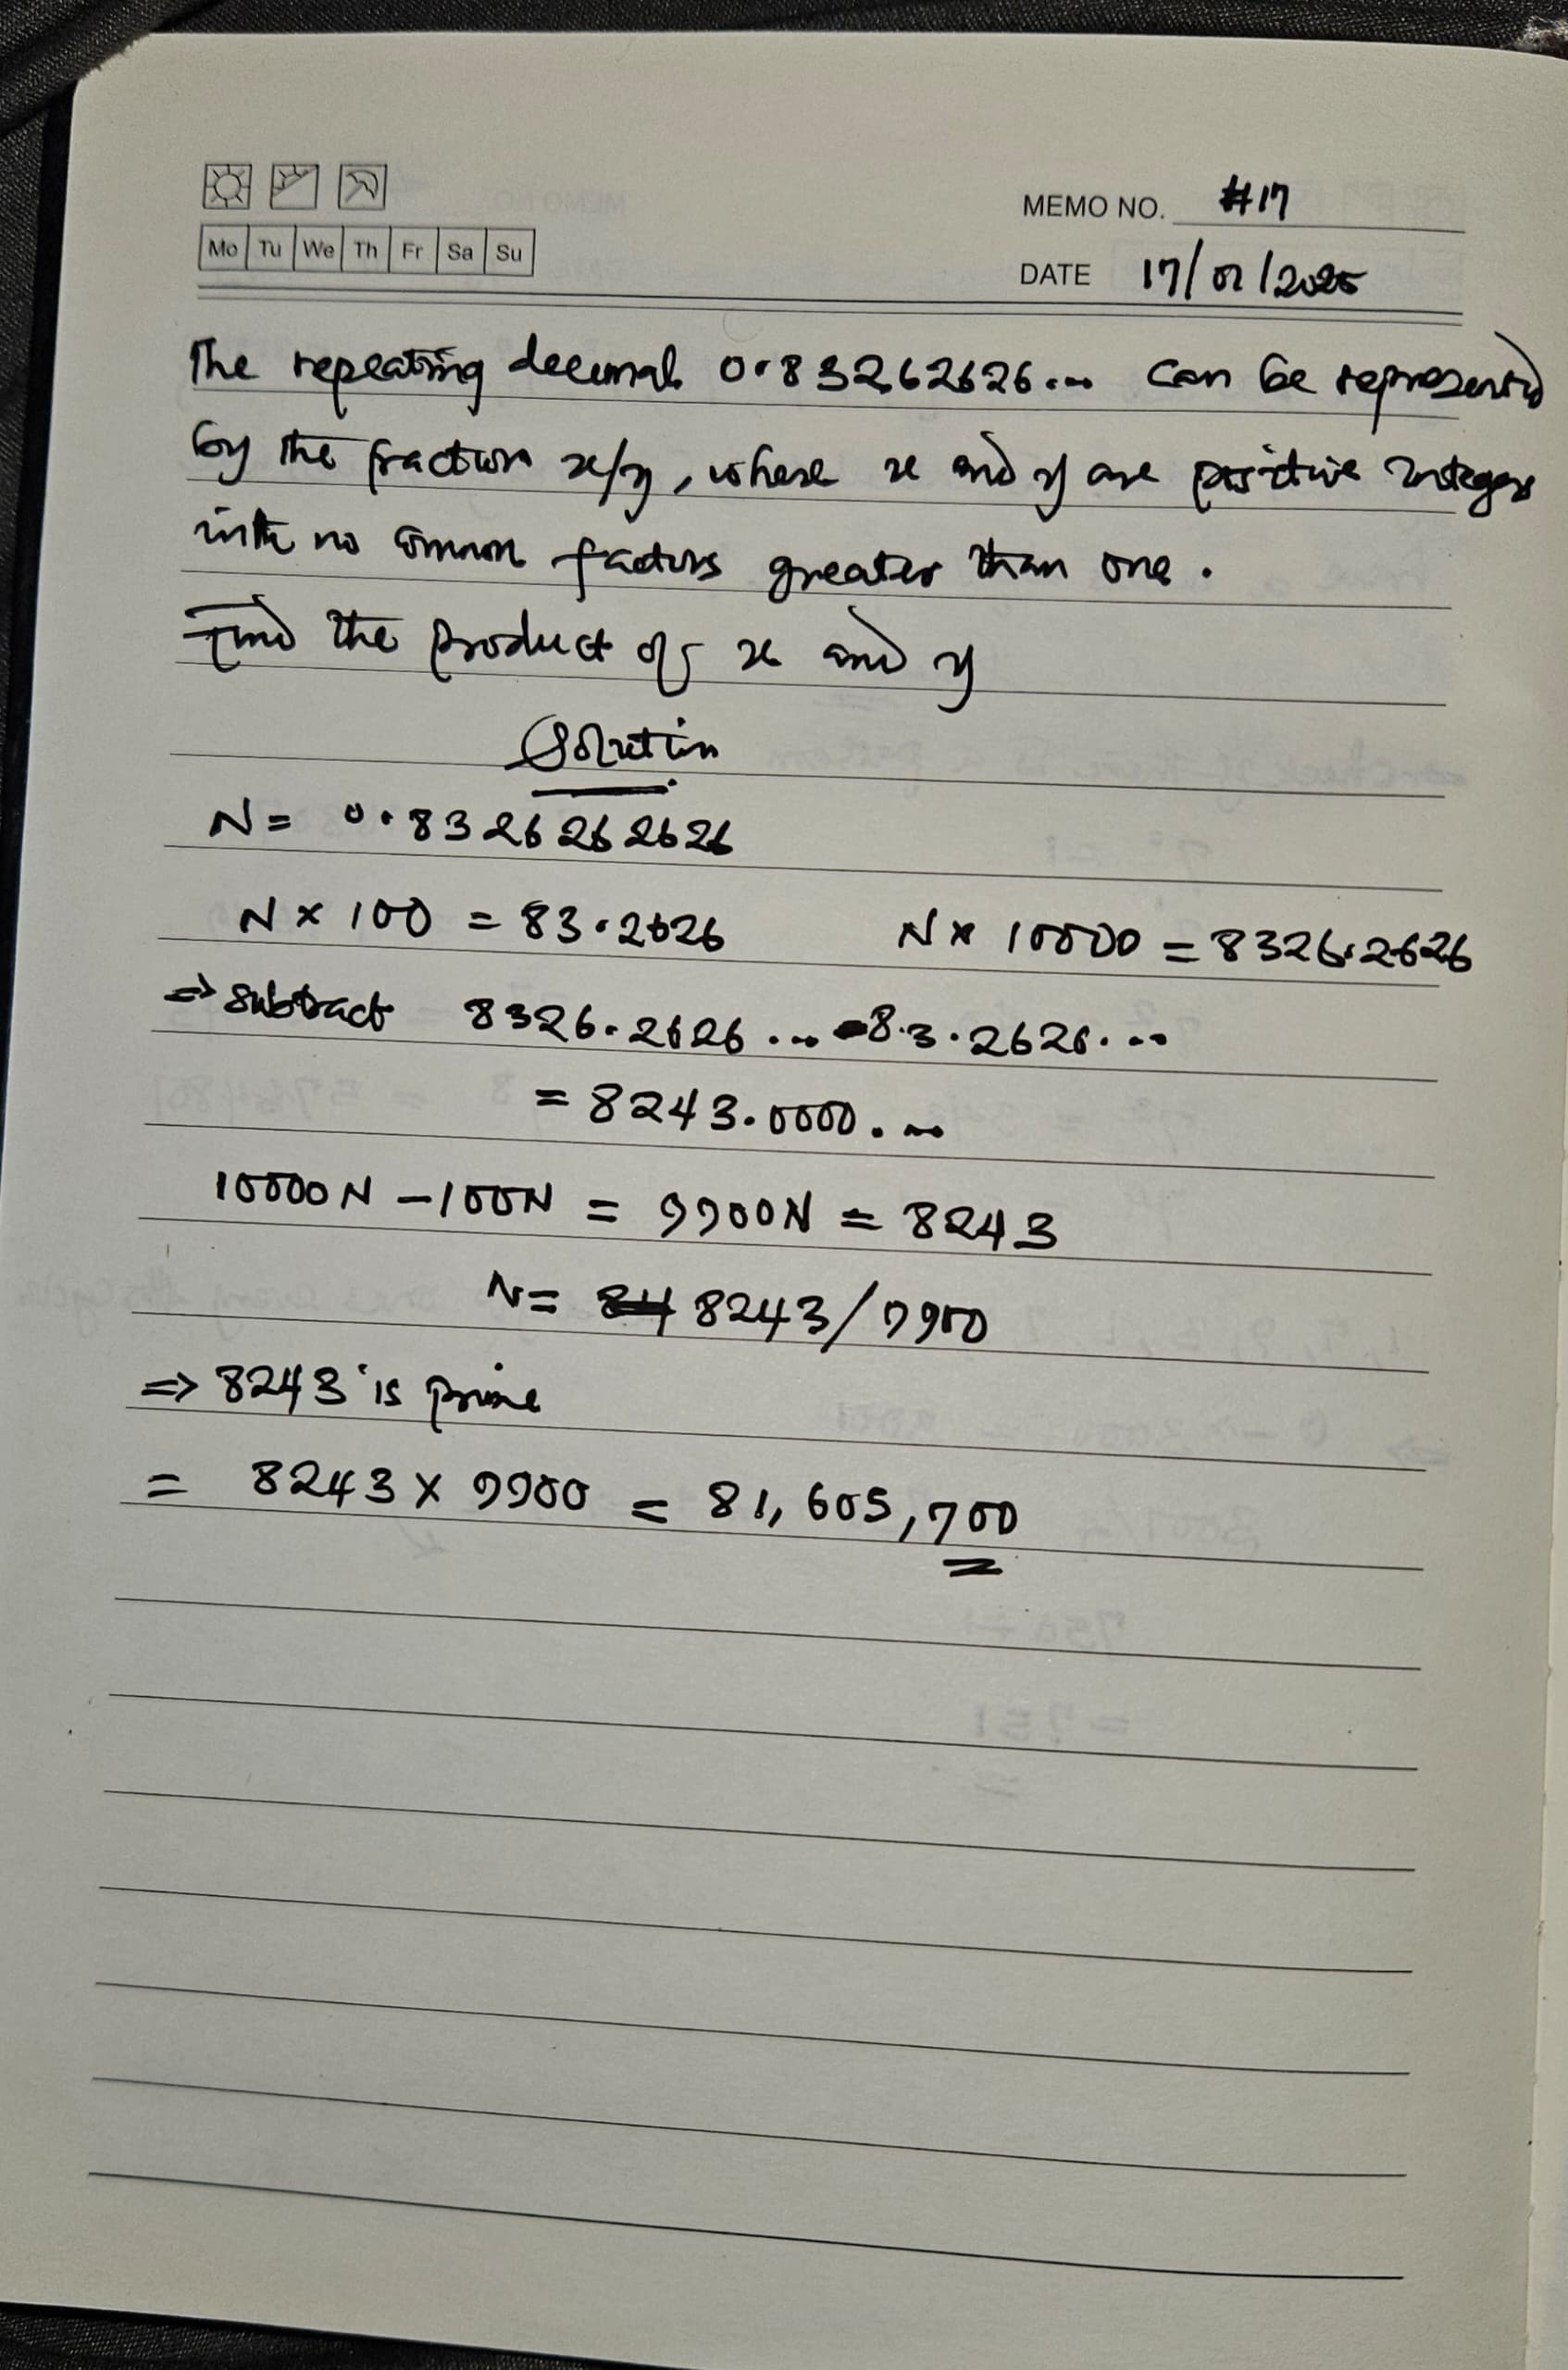 MEMO NO. #17
Mo Tu We Th Fr Sa Su
DATE 17/01/2025
The repeating decimal 0.83262626... can be represented
by the fraction x/y, where x and y are positive integers
with no common factors greater than one.
Find the product of x and y
Solution
N= 0.83262626 26
N x 100 = 83.2626 N x 10000 = 8326.2626
=> subtract 8326.2626... - 83.2626...
= 8243.0000...
10000N - 100N = 9900N = 8243
N= 8243/9900
=> 8243 is prime
= 8243 x 9900 = 81,605,700